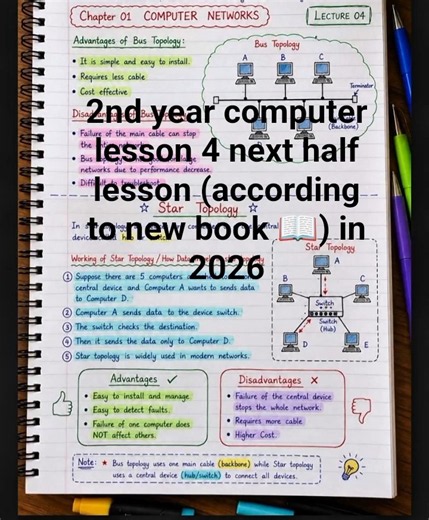 Chapter 01 COMPUTER NETWORKS
LECTURE 04
Advantages of Bus Topology:
• It is simple and easy to install.
• Requires less cable
• Cost effective
Bus Topology
A B C
Terminator
(Backbone)
2nd year computer
lesson 4 next half
lesson (according
to new book 📖) in
2026
• Failure of the main cable can stop
networks due to performance decrease.
☆ Star Topology ☆
Working of Star Topology / How Data
① Suppose there are 5 computers
central device and Computer A wants to sends data
to Computer D.
② Computer A sends data to the device switch.
③ The switch checks the destination.
④ Then it sends the data only to Computer D.
⑤ Star topology is widely used in modern networks.
Star Topology
A
B
C
Switch
Switch
(Hub)
D
E
Advantages ✓
• Easy to install and manage.
• Easy to detect faults.
• Failure of one computer does
NOT affect others.
Disadvantages ✗
• Failure of the central device
stops the whole network.
• Requires more cable.
• Higher Cost.
Note: ★ Bus topology uses one main cable (backbone) while Star topology
uses a central device (hub/switch) to connect all devices.